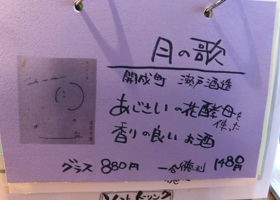 月の歌
開成町 瀬戸酒造
あじさいの花酵母を使った
香りの良いお酒
グラス 880円 一合徳利 1480円
ソフトドリンク